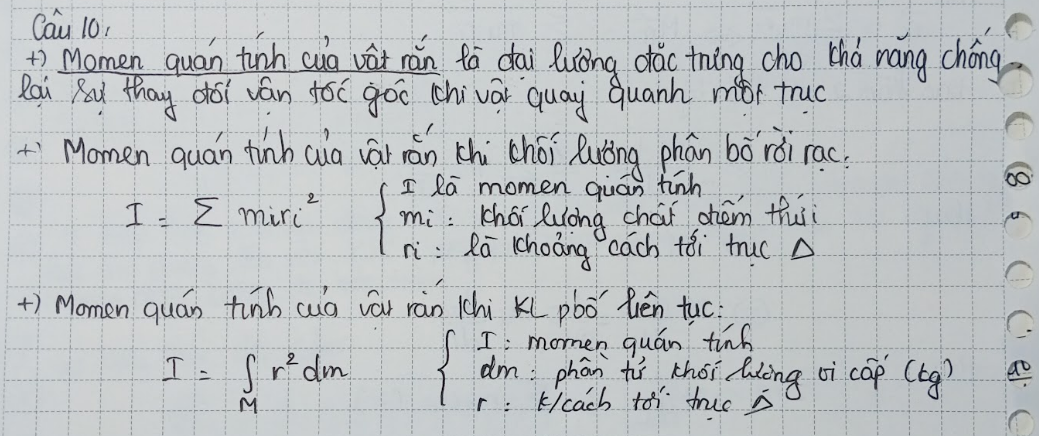 Câu 10:
+) Momen quán tính của vật rắn là đại lượng đặc trưng cho khả năng chống
lại sự thay đổi vận tốc góc khi vật quay quanh một trục
+) Momen quán tính của vật rắn khi khối lượng phân bố rời rạc:
I = Σ miri² { I là momen quán tính
mi : khối lượng chất điểm thứ i
ri : là khoảng cách tới trục Δ
+) Momen quán tính của vật rắn khi KL pbố liên tục:
I = ∫_M r² dm { I : momen quán tính
dm : phần tử khối lượng vi cấp (kg)
r : k/cách tới trục Δ